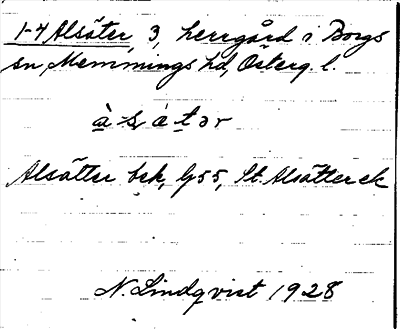 1-4 Alsäter 3 herrgård i Borgs
sn, Memmings hd, Österg. l.
à-s, ö́ t ə r
Alsätter bsk, G55, St. Alsätter ek
N. Lindqvist 1928